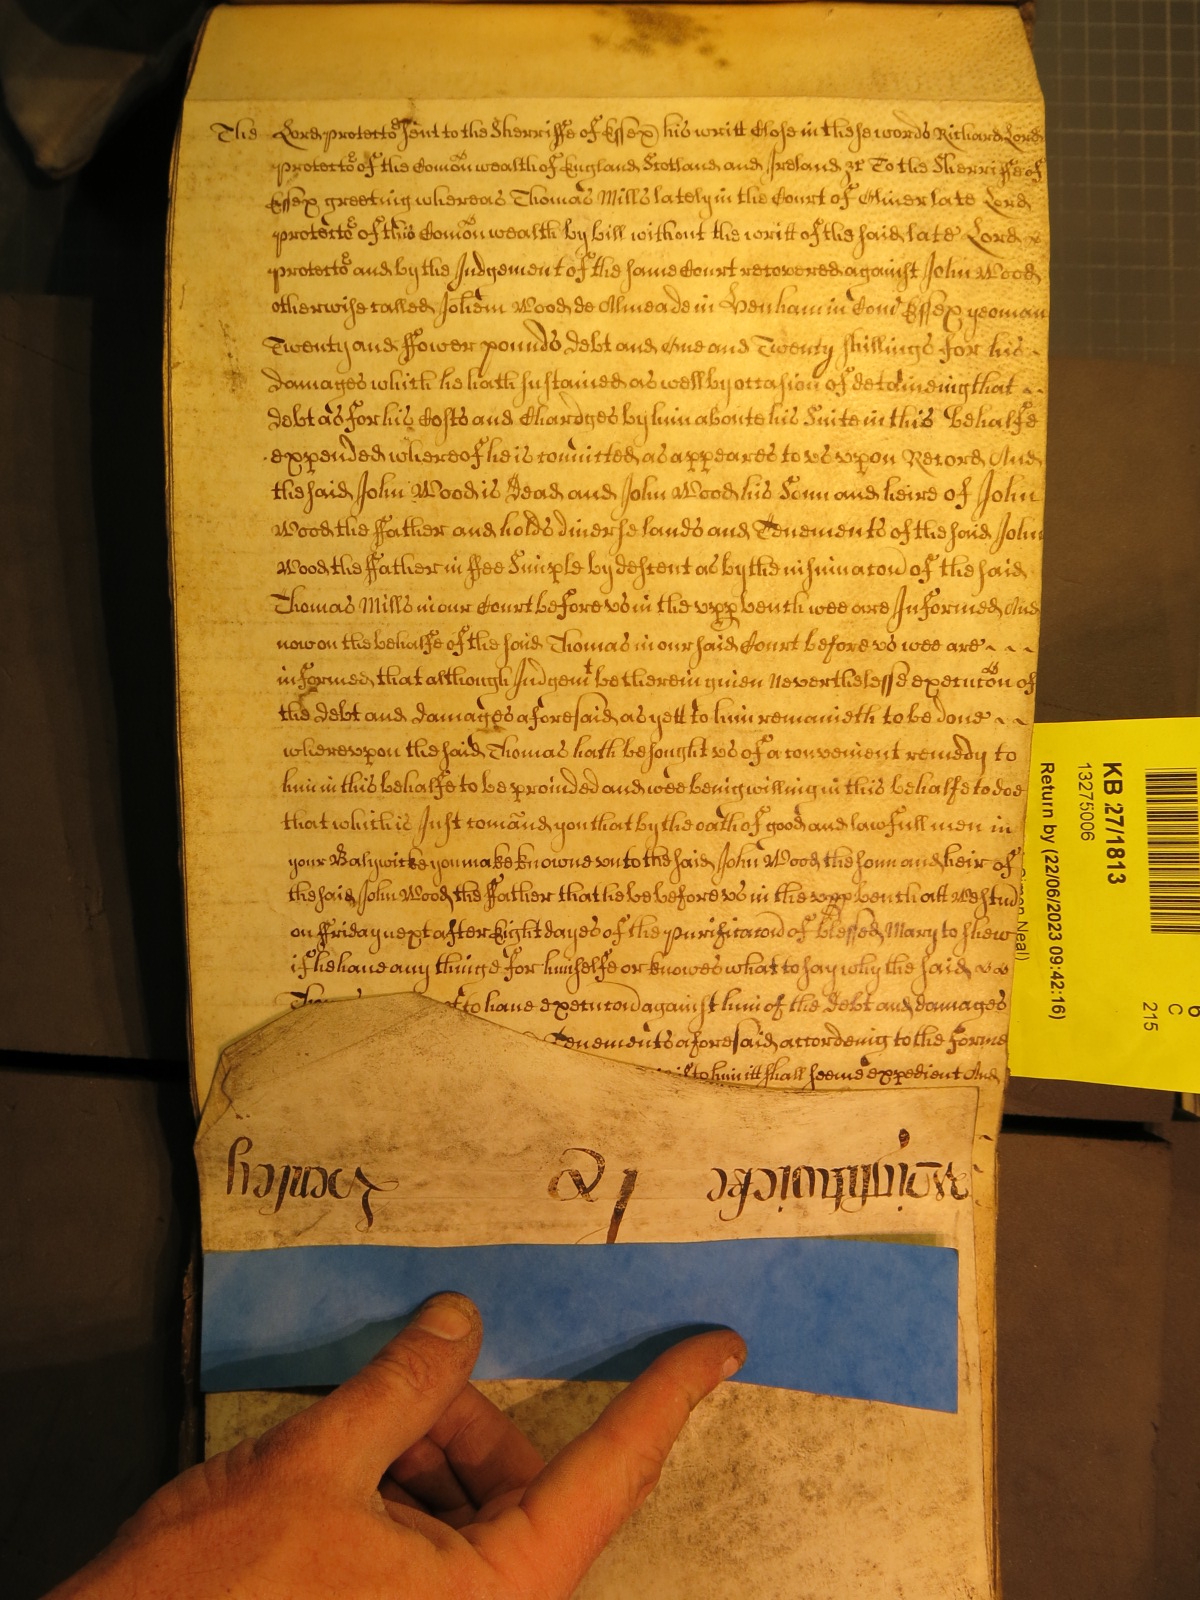 The Lord protector sent to the Sherriffe of Essex his writt Close in these words Richard Lord
protector of the Comonwealth of England Scotland and Ireland &c To the Sherriffe of
Essex greeting whereas Thomas Mills lately in the Court of Oliver late Lord
protector of this Comonwealth by bill without the writt of the said late Lord
protector and by the Judgement of the same Court recovered against John Wood
otherwise called John Wood de in Henham in Com Essex yeoman
Twenty and ffower pounds debt and One and Twenty shillings for his
damages which he hath sustained as well by occasion of detaineing that
debt as for his Costs and Chardges by him aboute his Suite in this behalfe
expended whereof he is convicted as appeares to vs vpon Record And
the said John Wood is dead and John Wood his Sonn and heire of John
Wood the ffather and holds diverse lands and Tenements of the said John
Wood the ffather in ffee Simple by descent as by the of the said
Thomas Mills in our Court before vs in the vpp bench wee are Informed And
now on the behalfe of the said Thomas in our said Court before vs wee are
informed that although Judgemt be therein given Neverthelesse execucon of
the debt and damages aforesaid as yett to him remaineth to be done
wherevpon the said Thomas hath besought vs of a convenient remedy to
him in this behalfe to be provided and wee being willing in this behalfe to doe
that which is Just comand you that by the oath of good and lawfull men in
your Balywicke you make knowne vnto the said John Wood the sonn and heir of
the said John Wood the ffather that he be before vs in the vpp bench att Westmr
on ffriday next after Eight dayes of the purificacon of blessed Mary to shew
if he have any thinge for himselfe or knowes what to say why the said
to have execucon against him of the debt and damages
Tenements aforesaid according to the forme
to him itt shall seeme expedient And
KB 27/1813
13275006
Return by (22/06/2023 09:42:16)
Neal)
C
215